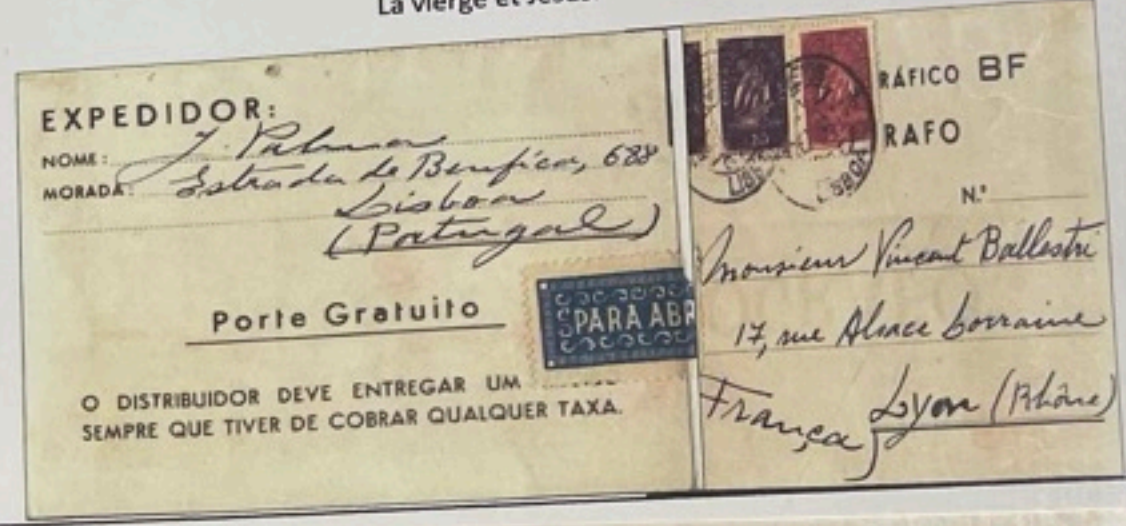 La vierge et
EXPEDIDOR:
NOME: J. Palma
MORADA: Estrada de Benfica, 688
Lisboa
(Portugal)
Porte Gratuito
PARA ABR
O DISTRIBUIDOR DEVE ENTREGAR UM
SEMPRE QUE TIVER DE COBRAR QUALQUER TAXA.
RÁFICO BF
RAFO
N.º
Monsieur Vincent Ballestri
17, rue Alsace Lorraine
Lyon (Rhône)
França